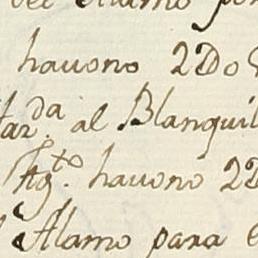 del Alamo por
havono 2 Do
da al Blanquil
Ag.to havono 2 D
Alamo para e